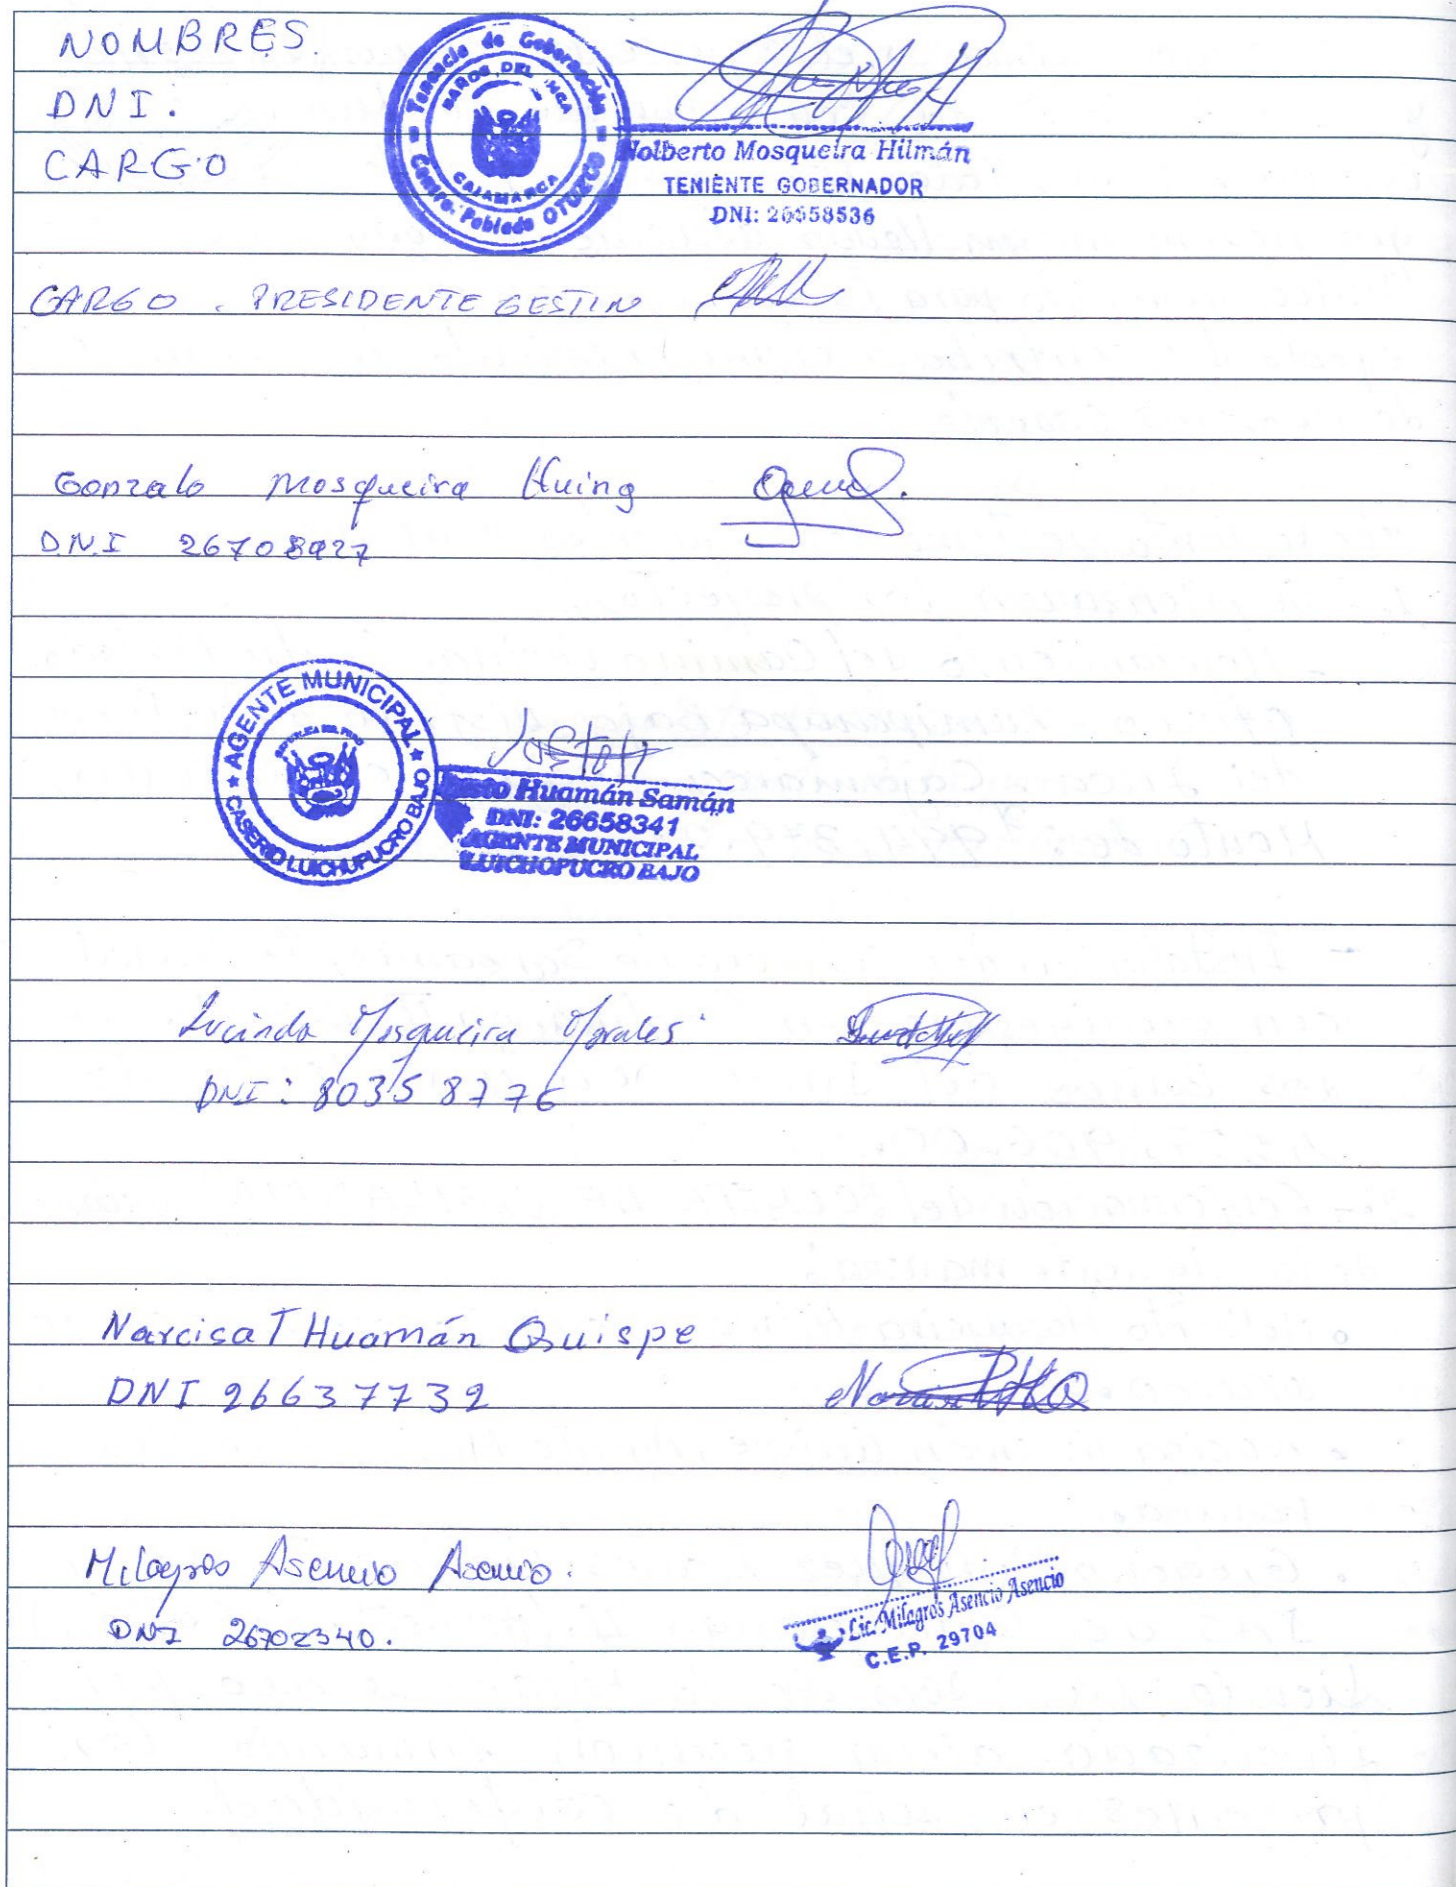 NOMBRES.
DNI.
CARGO
Tenencia de Gobernación
BAÑOS DEL INCA
CAJAMARCA
Centro Poblado OTUZCO
Nolberto Mosqueira Hilmán
TENIENTE GOBERNADOR
DNI: 26658536
CARGO . PRESIDENTE GESTIN
Gonzalo Mosqueira Huing
D.N.I 26708927
AGENTE MUNICIPAL
REPUBLICA DEL PERU
CASERIO LUICHUPUCRO BAJO
Huamán Samán
DNI: 26658341
AGENTE MUNICIPAL
LUICHOPUCRO BAJO
Lucinda Mosqueira Morales
DNI: 80358776
Narcisa T Huamán Quispe
DNI 26637732
Milagros Asencio Asencio.
DNI 26702340.
Lic. Milagros Asencio Asencio
C.E.P. 29704